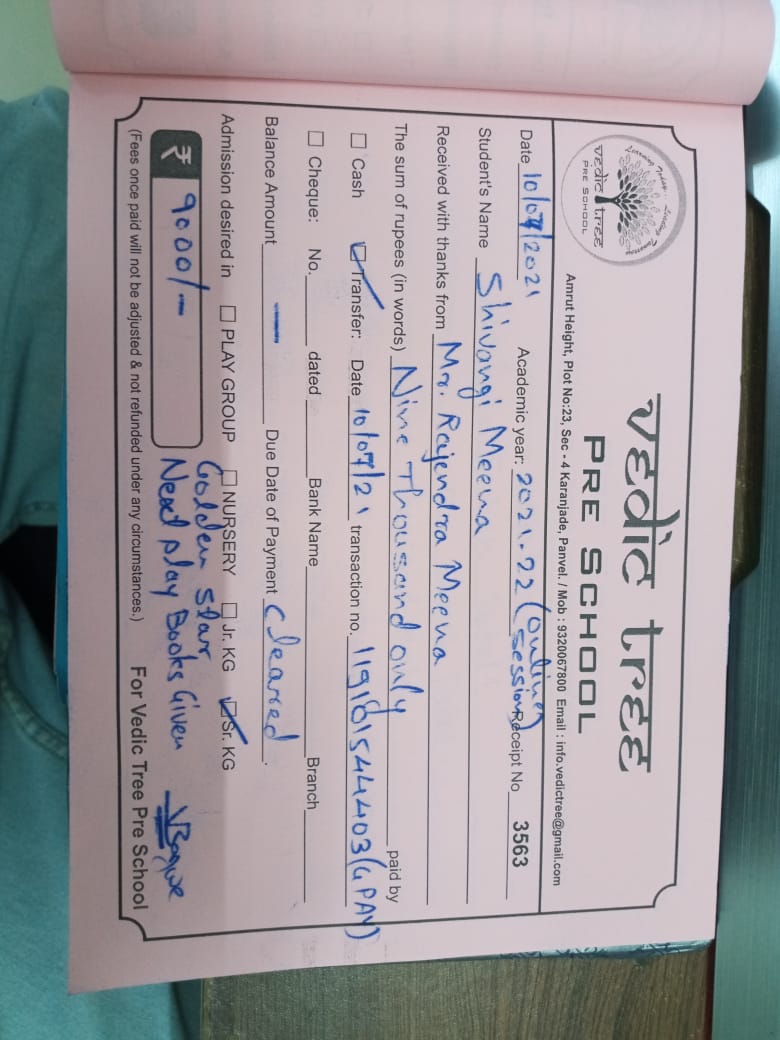 Learning Today... Leading Tomorrow
vedic tree
PRE SCHOOL
vedic tree
PRE SCHOOL
Amrut Height, Plot No:23, Sec - 4 Karanjade, Panvel. / Mob : 9320067800 Email : info.vedictree@gmail.com
Date 10/07/2021 Academic year: 2021-22 (online session) Receipt No 3563
Student's Name Shivangi Meena
Received with thanks from Mr. Rajendra Meena
The sum of rupees (in words) Nine Thousand only paid by
☐ Cash ☑ Transfer: Date 10/07/21 transaction no. 119161544403 (GPAY)
☐ Cheque: No. dated Bank Name Branch
Balance Amount — Due Date of Payment cleared.
Admission desired in ☐ PLAY GROUP ☐ NURSERY ☐ Jr. KG ☑ Sr. KG
₹ 9000/- Golden Star
Next play Books Given
(Fees once paid will not be adjusted & not refunded under any circumstances.) For Vedic Tree Pre School